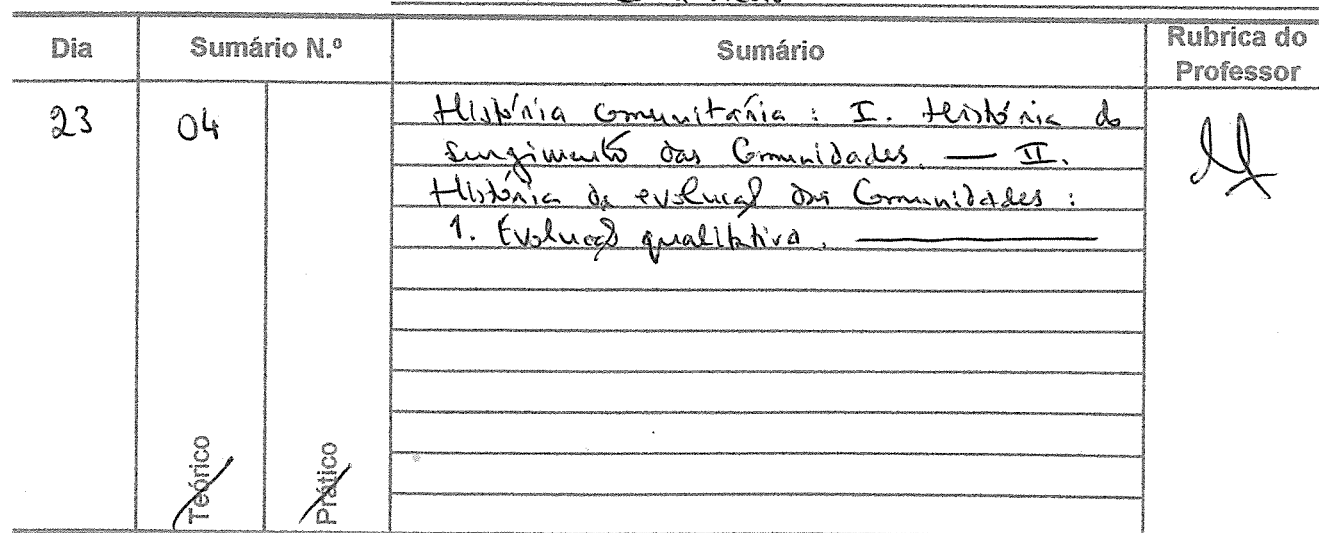 Dia Sumário N.º Sumário Rubrica do Professor
23 04 História comunitária : I. História do
surgimento das Comunidades. — II.
História da evolução das Comunidades :
1. Evolução qualitativa. —
Teórico Prático